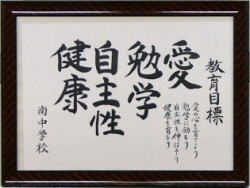 教育目標
愛の心を育てよう
勉学に励もう
自主性を伸ばそう
健康を育もう
愛
勉学
自主性
健康
南中学校